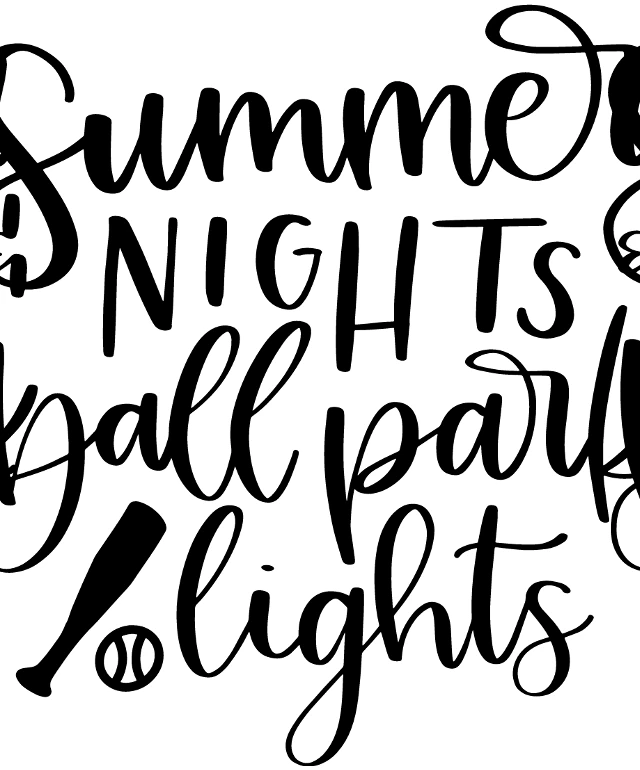 Summer
NIGHTS
ball park
lights